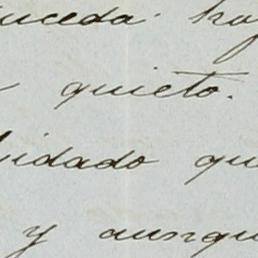 suceda. hoy
quieto.
cuidado que
y aunque